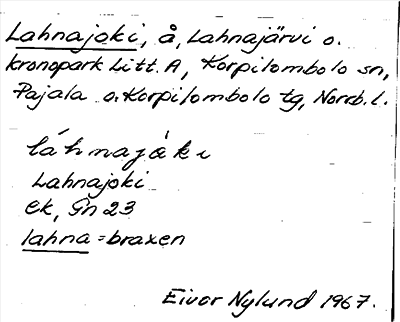 Lahnajoki, å, Lahnajärvi o.
kronopark Litt. A, Korpilombolo sn,
Pajala o. Korpilombolo tg, Norrb. l.
láhnajåkı
Lahnajoki
ek, Gn 23
lahna = braxen
Eivor Nylund 1967.